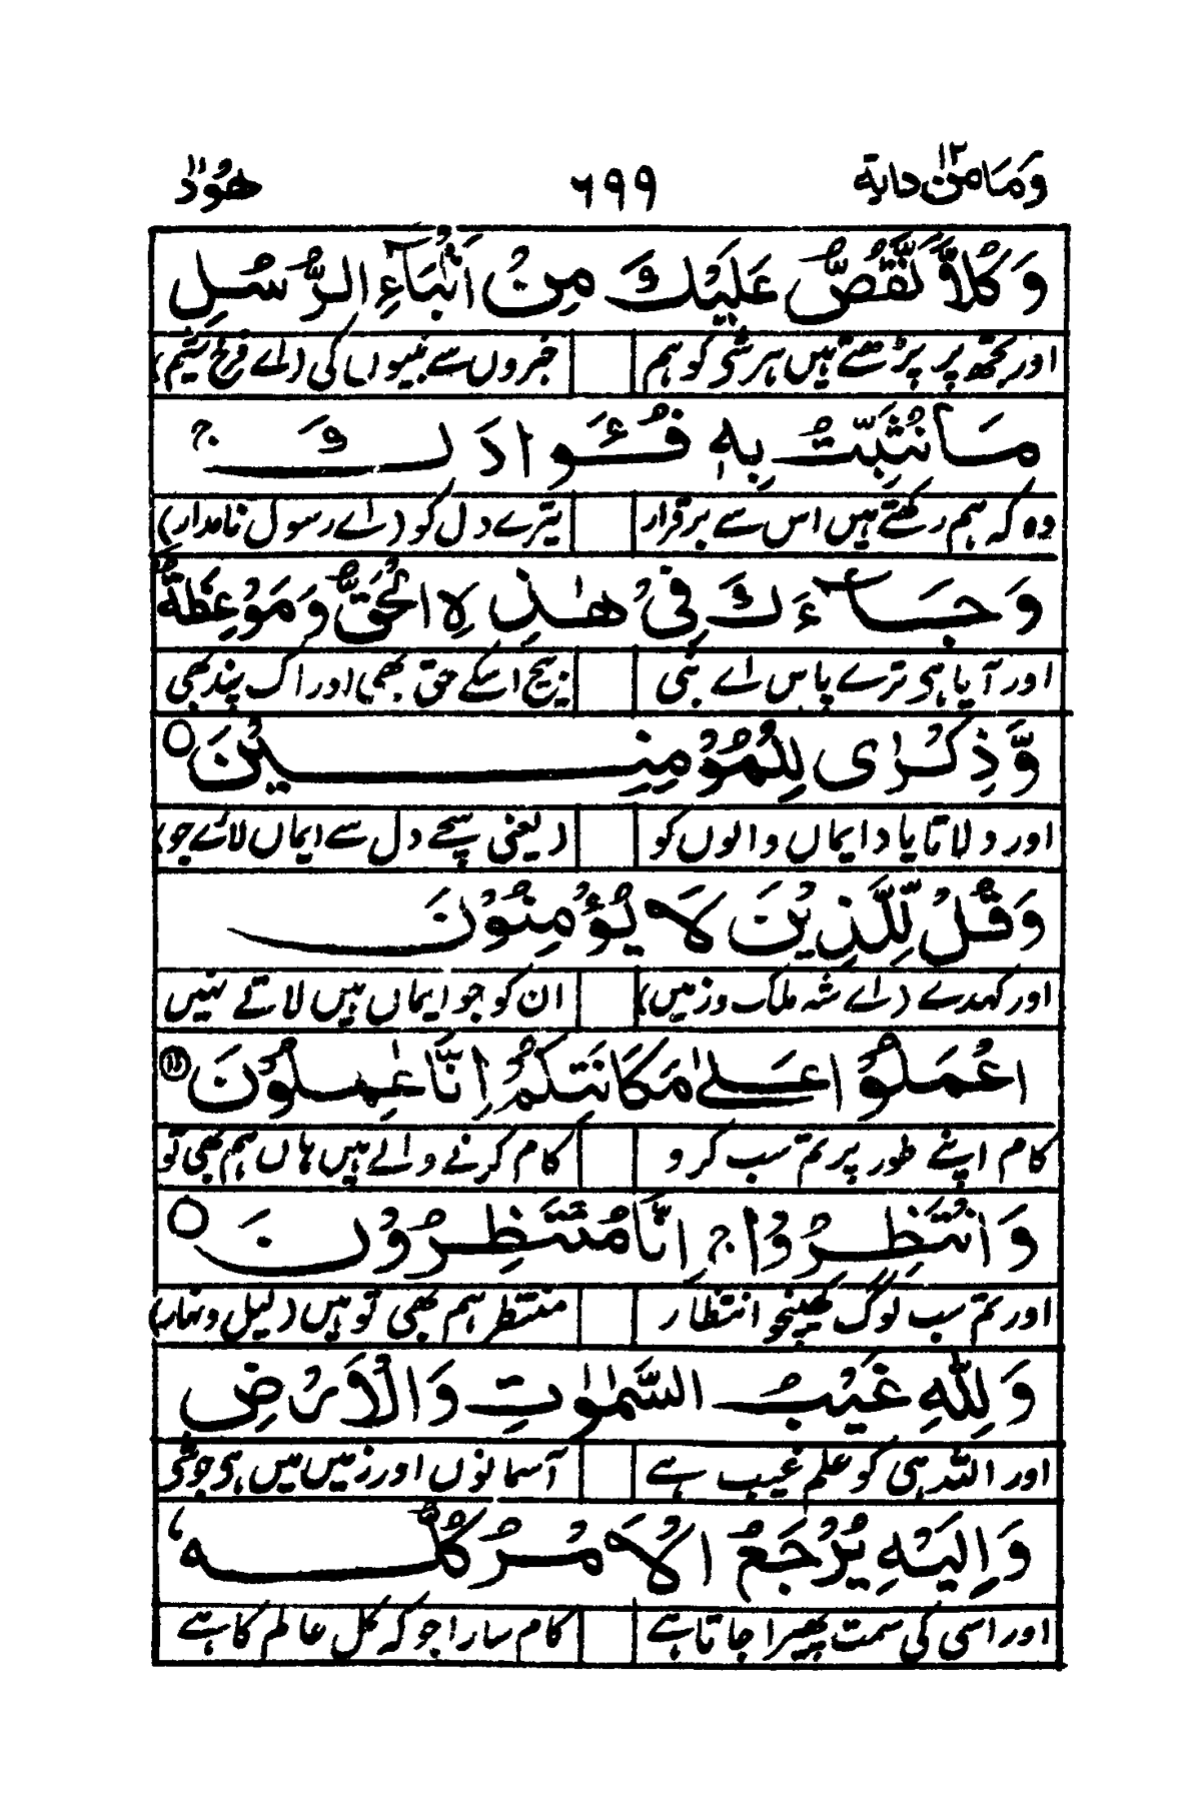 وَمَا مِنْ دابة ١٢ ٦٩٩ هُوْد ١١
وَكُلًّا نَّقُصُّ عَلَيْكَ مِنْ اَنْۢبَآءِ الرُّسُلِ
اور تجھ پر پڑھتے ہیں ہر شی کو ہم خبروں سے نبیوں کی (اے فرخ شیم)
مَا نُثَبِّتُ بِهٖ فُؤَادَكَ ج
وہ کہ ہم رکھتے ہیں اس سے برقرار تیرے دل کو (اے رسول نامدار)
وَجَآءَكَ فِيْ هٰذِهِ الْحَقُّ وَمَوْعِظَةٌ
اور آیا ہی ترے پاس اے نبی بیچ اسکے حق بھی اور اک پند بھی
وَّذِكْرٰى لِلْمُؤْمِنِيْنَ ○
اور دلاتا یاد ایماں والوں کو (یعنی سچے دل سے ایماں لائے جو)
وَقُلْ لِّلَّذِيْنَ لَا يُؤْمِنُوْنَ
اور کہدے (اے شہ ملک و زمیں) ان کو جو ایماں ہیں لاتے نہیں
اعْمَلُوْا عَلٰى مَكَانَتِكُمْ اِنَّا عٰمِلُوْنَ
کام اپنے طور پر تم سب کرو کام کرنے والے ہیں ہاں ہم بھی تو
وَانْتَظِرُوْا ج اِنَّا مُنْتَظِرُوْنَ ○
اور تم سب لوگ کھینچو انتظار منتظر ہم بھی تو ہیں (لیل و نہار)
وَلِلّٰهِ غَيْبُ السَّمٰوٰتِ وَالْاَرْضِ
اور اللہ ہی کو علم غیب ہے آسمانوں اور زمیں میں ہی جو شی
وَاِلَيْهِ يُرْجَعُ الْاَمْرُ كُلُّهٗ
اور اسی کی سمت پھیرا جاتا ہے کام سارا جو کہ کل عالم کا ہے